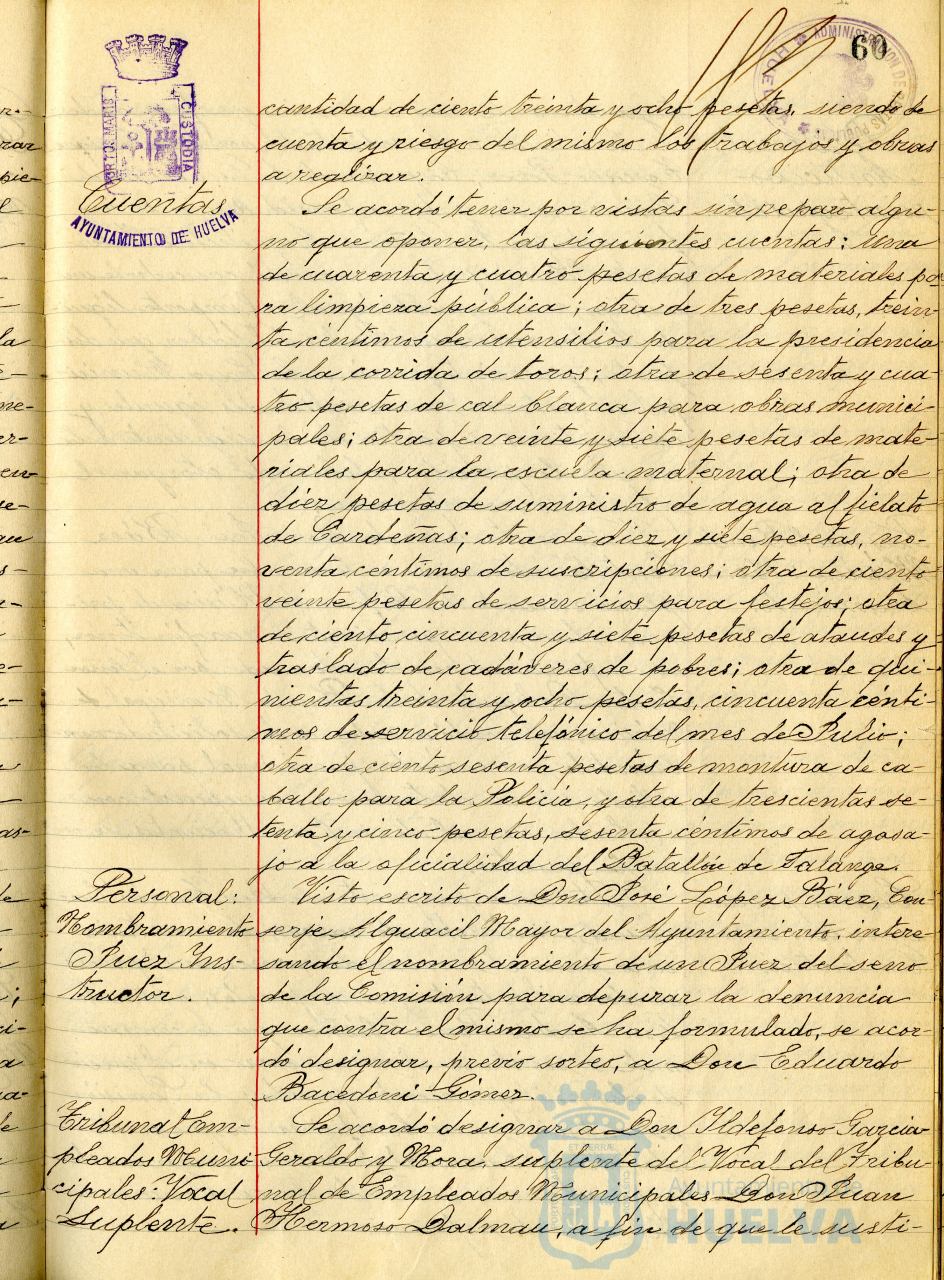 60
ADMINISTRACION DE
HUELVA
PORTUS MARIS
CUSTODIA
AYUNTAMIENTO DE HUELVA
cantidad de ciento treinta y ocho pesetas, siendo de
cuenta y riesgo del mismo los trabajos y obras
a realizar.
Cuentas
Se acordó tener por vistas sin reparo algu-
no que oponer, las siguientes cuentas: una
de cuarenta y cuatro pesetas de materiales pa-
ra limpieza pública; otra de tres pesetas, trein-
ta céntimos de utensilios para la presidencia
de la corrida de toros; otra de sesenta y cua-
tro pesetas de cal blanca para obras munici-
pales; otra de veinte y siete pesetas de mate-
riales para la escuela maternal; otra de
diez pesetas de suministro de agua al fielato
de Cardeñas; otra de diez y siete pesetas, no-
venta céntimos de suscripciones; otra de ciento
veinte pesetas de servicios para festejos; otra
de ciento cincuenta y siete pesetas de ataudes y
traslado de cadáveres de pobres; otra de qui-
nientas treinta y ocho pesetas, cincuenta cénti-
mos de servicio telefónico del mes de Julio;
otra de ciento sesenta pesetas de montura de ca-
ballo para la Policía, y otra de trescientas se-
tenta y cinco pesetas, sesenta céntimos de agasa-
jo a la oficialidad del Batallón de Falange.
Personal:
Nombramiento
Juez Ins-
tructor.
Visto escrito de Don José López Báez, Con-
serje Alguacil Mayor del Ayuntamiento, intere-
sando el nombramiento de un Juez del seno
de la Comisión para depurar la denuncia
que contra el mismo se ha formulado, se acor-
dó designar, previo sorteo, a Don Eduardo
Bacedoni Gómez.
Tribunal Em-
pleados Muni-
cipales: Vocal
suplente.
Se acordó designar a Don Ildefonso Garcia-
Geraldo y Mora, suplente del Vocal del Tribu-
nal de Empleados Municipales Don Juan
Hermoso Dalmau, a fin de que le susti-
Ayuntamiento de
HUELVA